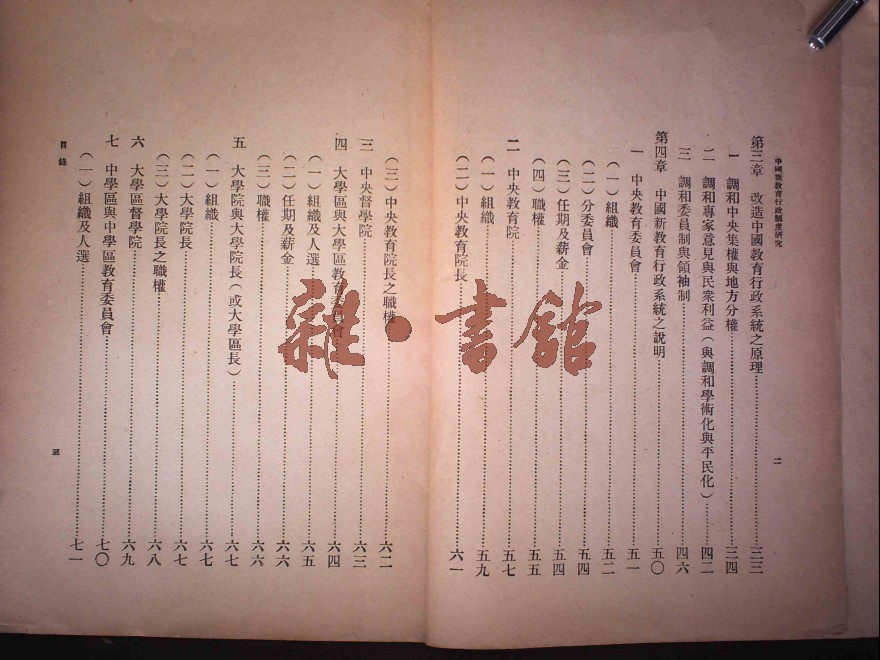 中國新教育行政制度研究
二
第三章　改造中國教育行政系統之原理……三三
一　調和中央集權與地方分權……三四
二　調和專家意見與民衆利益（與調和學術化與平民化）……四二
三　調和委員制與領袖制……四六
第四章　中國新教育行政系統之說明……五〇
一　中央教育委員會……五一
（一）組織……五二
（二）分委員會……五四
（三）任期及薪金……五四
（四）職權……五五
二　中央教育院……五七
（一）組織……五九
（二）中央教育院長……六一
（三）中央教育院長之職權……六二
三　中央督學院……六三
四　大學區與大學區教育委員會……六四
（一）組織及人選……六五
（二）任期及薪金……六六
（三）職權……六六
五　大學院與大學院長（或大學區長）……六七
（一）組織……六七
（二）大學院長……六七
（三）大學院長之職權……六八
六　大學區督學院……六九
七　中學區與中學區教育委員會……七〇
（一）組織及人選……七一
目錄
雜·書館